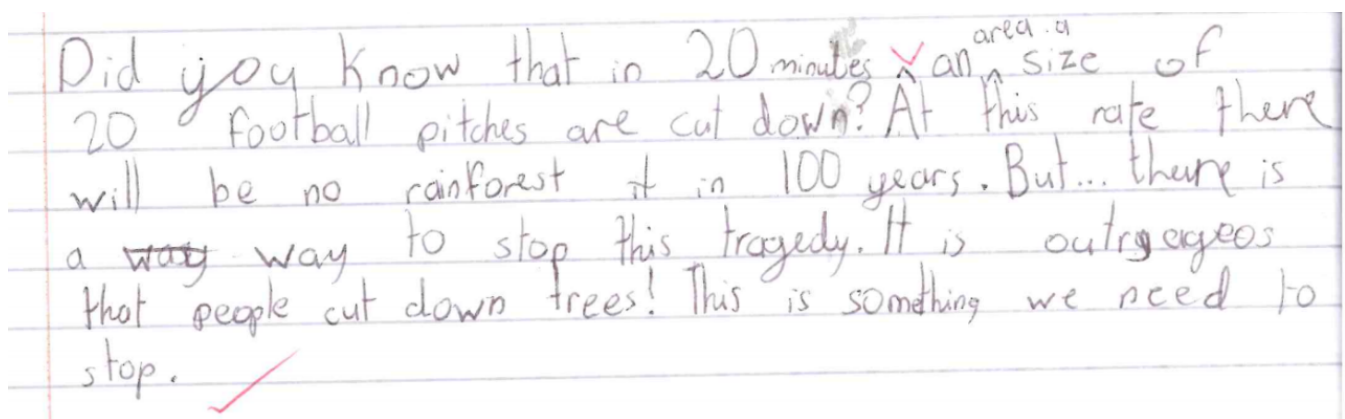 Did you know that in 20 minutes an area a size of
20 football pitches are cut down? At this rate there
will be no rainforest it in 100 years. But... there is
a way way to stop this tragedy. It is outrgageos
that people cut down trees! This is something we need to
stop.